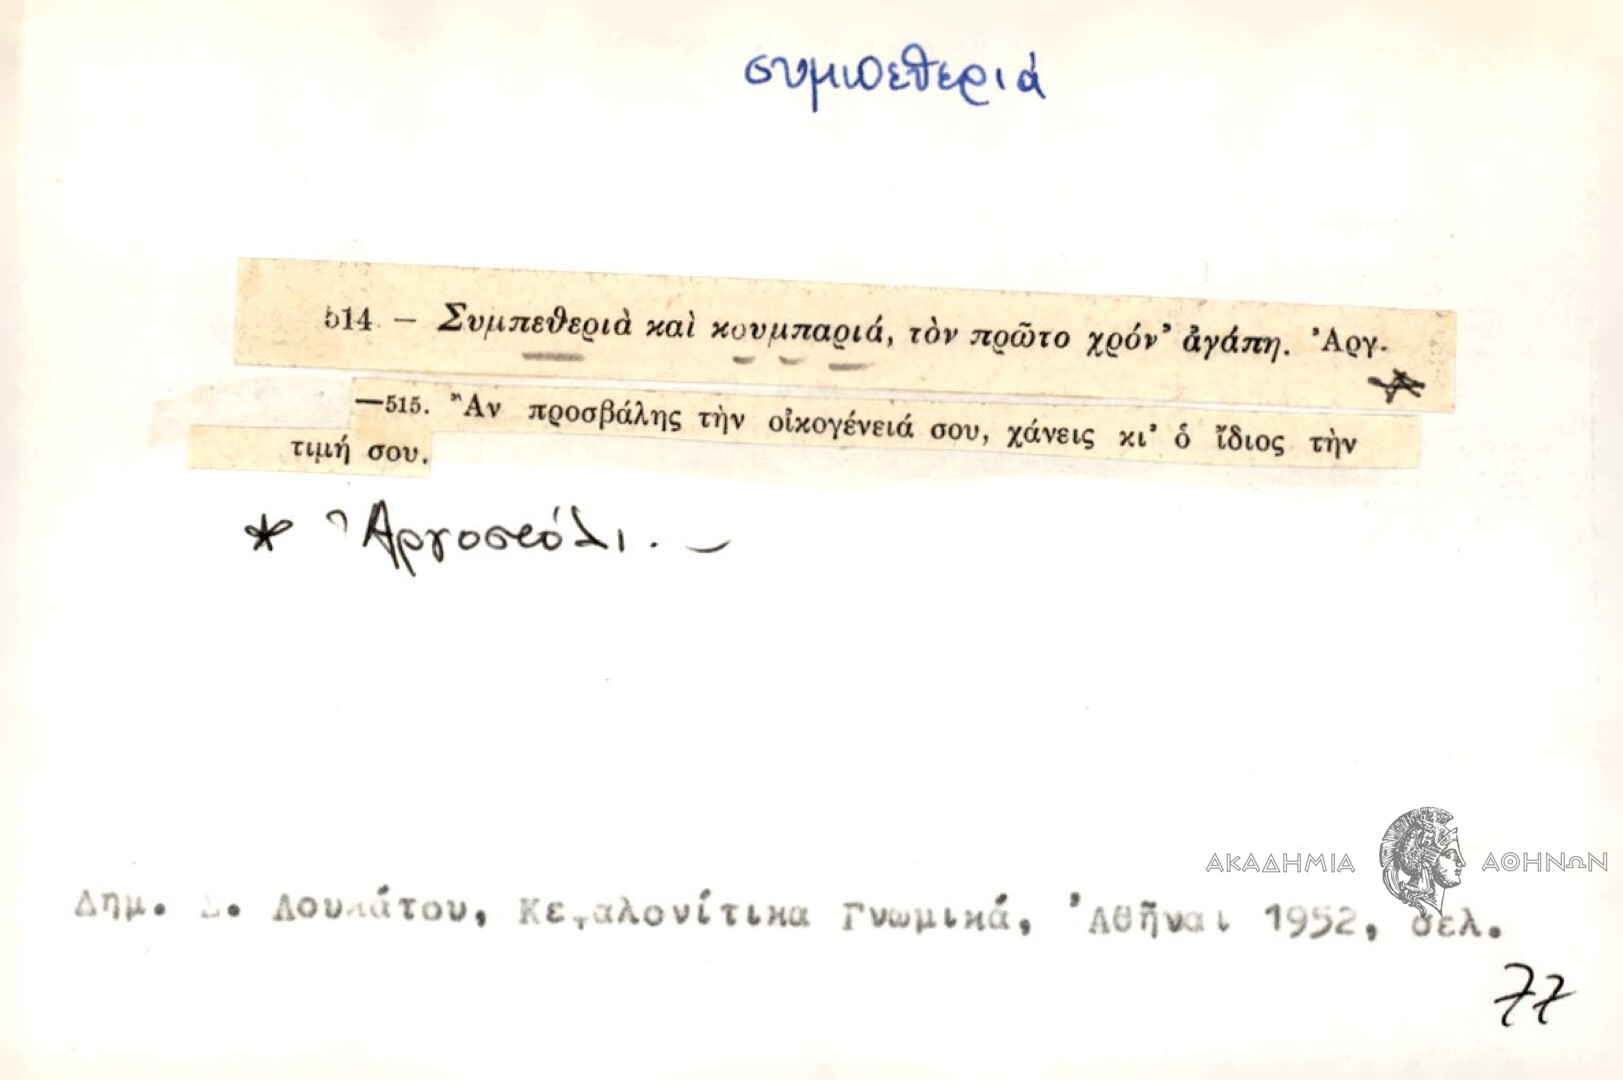 συμπεθεριά
514 — Συμπεθεριὰ καὶ κουμπαριά, τὸν πρῶτο χρόν' ἀγάπη. Ἀργ.
—515. Ἂν προσβάλης τὴν οἰκογένειά σου, χάνεις κι' ὁ ἴδιος τὴν
τιμή σου.
* Ἀργοστόλι. —
ΑΚΑΔΗΜΙΑ ΑΘΗΝΩΝ
Δημ. Σ. Λουκάτου, Κεφαλονίτικα Γνωμικά, Ἀθῆναι 1952, σελ.
77